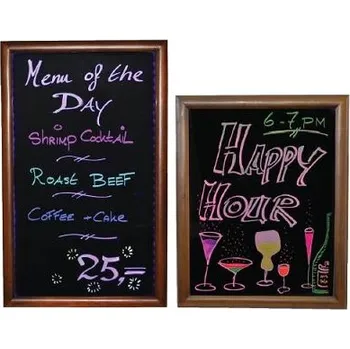 Menu of the
Day
Shrimp Cocktail
Roast Beef
Coffee + Cake
25,=
6-7 PM
Happy
Hour